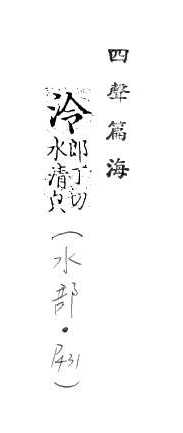 四聲篇海
泠郎丁切水清皃
(水部·P431)